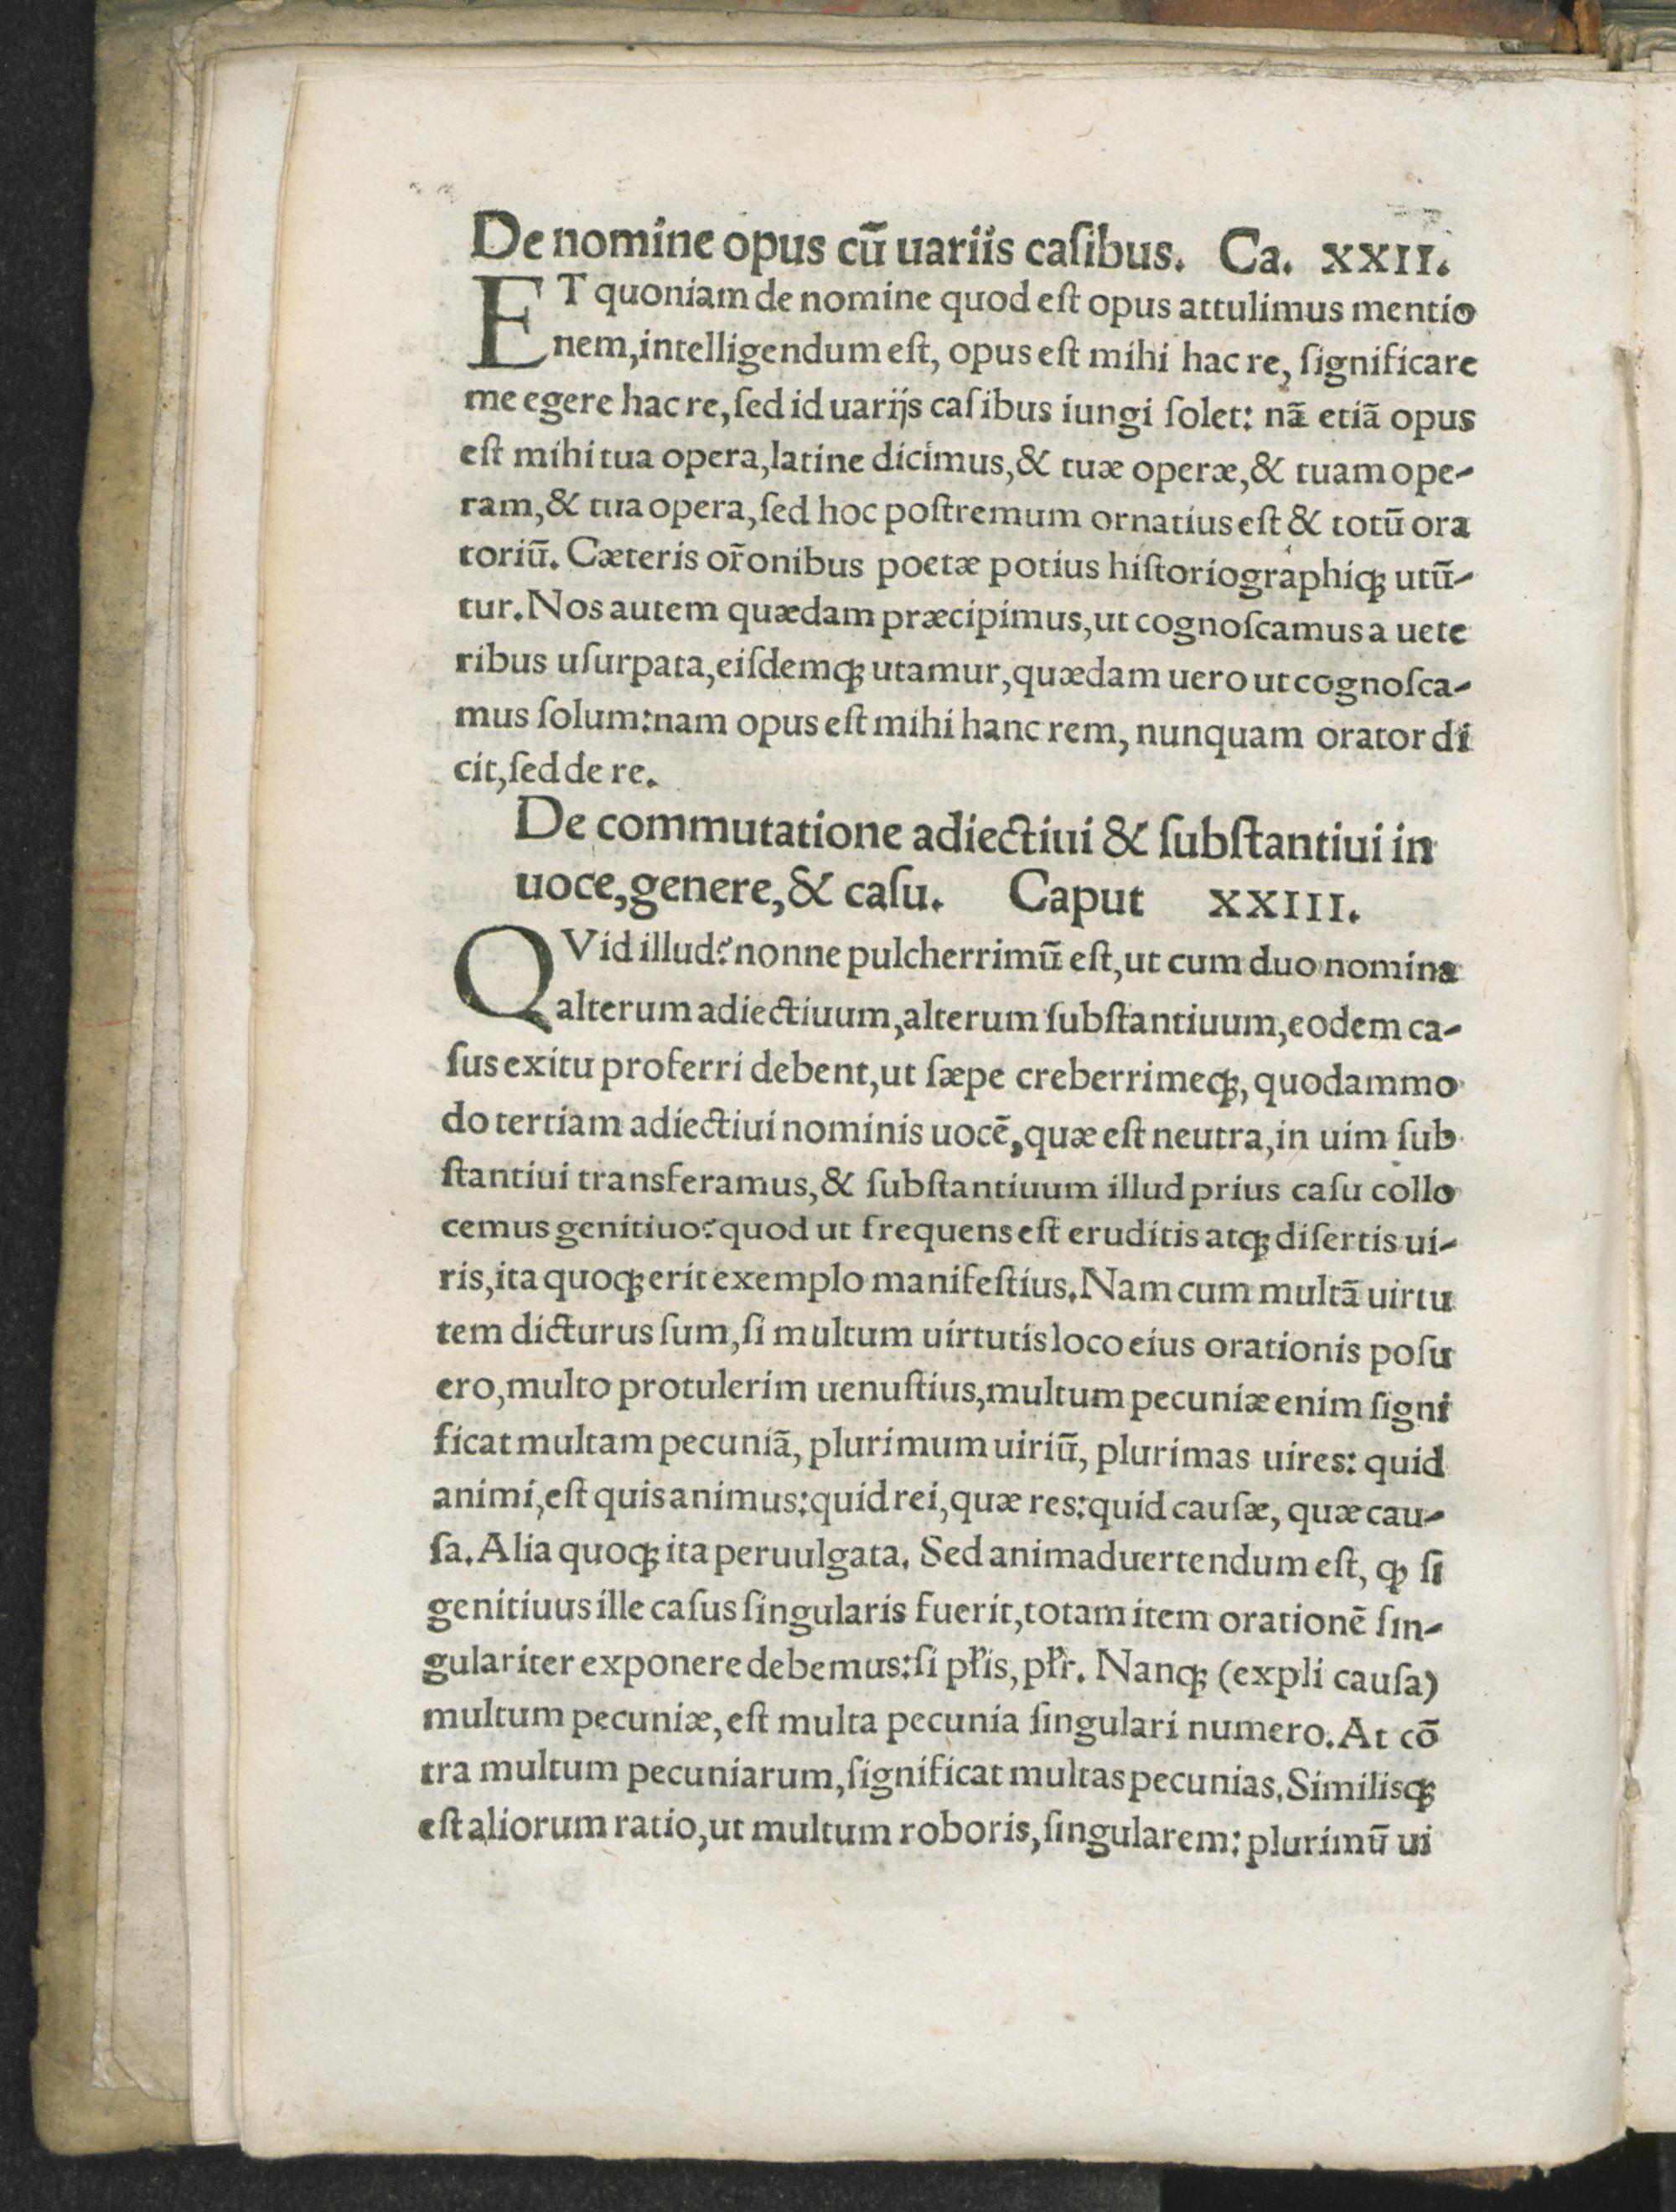 De nomine opus cū uariis caſibus. Ca. XXII.
ET quoniam de nomine quod eſt opus attulimus mentio
nem, intelligendum eſt, opus eſt mihi hac re, ſignificare
me egere hac re, ſed id uarijs caſibus iungi ſolet: nā etiā opus
eſt mihi tua opera, latine dicimus, & tuæ operæ, & tuam ope-
ram, & tua opera, ſed hoc poſtremum ornatius eſt & totū ora
toriū. Cæteris or̃onibus poetæ potius hiſtoriographiqꝫ utū-
tur. Nos autem quædam præcipimus, ut cognoſcamus a uete
ribus uſurpata, eiſdemqꝫ utamur, quædam uero ut cognoſca-
mus ſolum: nam opus eſt mihi hanc rem, nunquam orator di
cit, ſed de re.
De commutatione adiectiui & ſubſtantiui in
uoce, genere, & caſu. Caput XXIII.
QVid illud? nonne pulcherrimū eſt, ut cum duo nomina
alterum adiectiuum, alterum ſubſtantiuum, eodem ca-
ſus exitu proferri debent, ut ſæpe creberrimeqꝫ, quodammo
do tertiam adiectiui nominis uocē, quæ eſt neutra, in uim ſub
ſtantiui transferamus, & ſubſtantiuum illud prius caſu collo
cemus genitiuo? quod ut frequens eſt eruditis atqꝫ diſertis ui-
ris, ita quoqꝫ erit exemplo manifeſtius. Nam cum multā uirtu
tem dicturus ſum, ſi multum uirtutis loco eius orationis poſu
ero, multo protulerim uenuſtius, multum pecuniæ enim ſigni
ficat multam pecuniā, plurimum uiriū, plurimas uires: quid
animi, eſt quis animus: quid rei, quæ res: quid cauſæ, quæ cau-
ſa. Alia quoqꝫ ita peruulgata. Sed animaduertendum eſt, ꝙ ſi
genitiuus ille caſus ſingularis fuerit, totam item orationē ſin-
gulariter exponere debemus: ſi pl̃is, pl̃r. Nanqꝫ (expli cauſa)
multum pecuniæ, eſt multa pecunia ſingulari numero. At cō
tra multum pecuniarum, ſignificat multas pecunias. Similisqꝫ
eſt aliorum ratio, ut multum roboris, ſingularem: plurimū ui